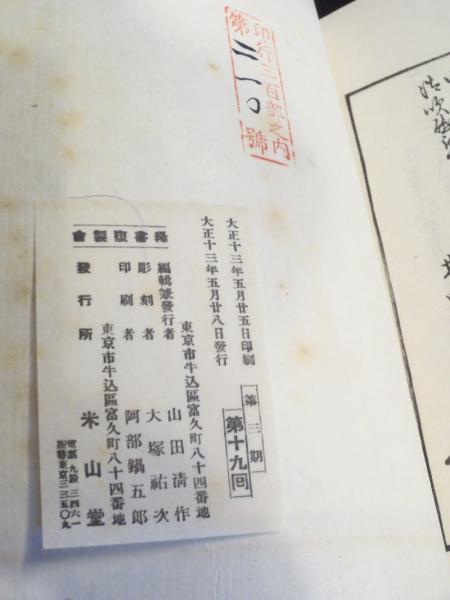 印行三百部之内
第二一〇號
大正十三年五月廿五日印刷
大正十三年五月廿八日發行
第三期
第十九回
稀書複製會
東京市牛込區富久町八十四番地
編輯兼發行者 山田清作
彫刻者 大塚祐次
印刷者 阿部鍋五郎
東京市牛込區富久町八十四番地
發行所 米山堂
電話九段二四六一
振替東京三三五〇九